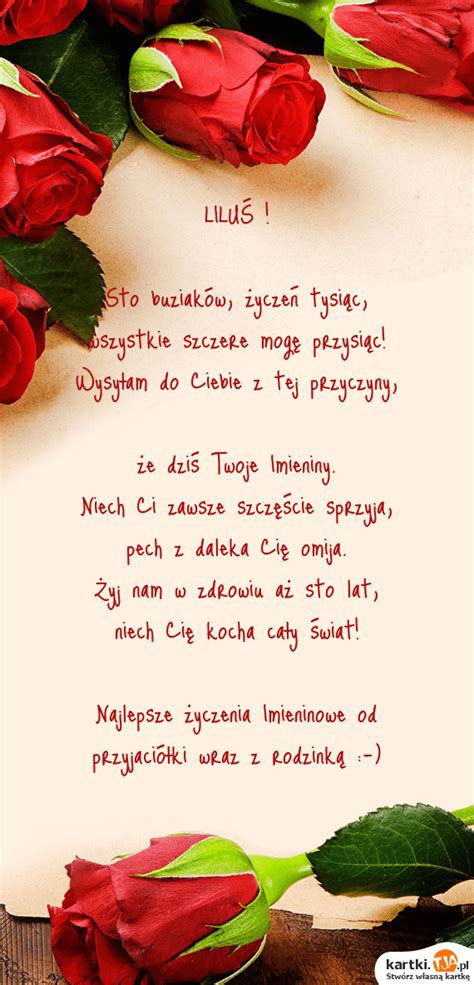 LILUŚ !
Sto buziaków, życzeń tysiąc,
wszystkie szczere mogę przysiąc!
Wysyłam do Ciebie z tej przyczyny,
że dziś Twoje Imieniny.
Niech Ci zawsze szczęście sprzyja,
pech z daleka Cię omija.
Żyj nam w zdrowiu aż sto lat,
niech Cię kocha cały świat!
Najlepsze życzenia Imieninowe od
przyjaciółki wraz z rodzinką :-)
kartki.TJA.pl
Stwórz własną kartkę